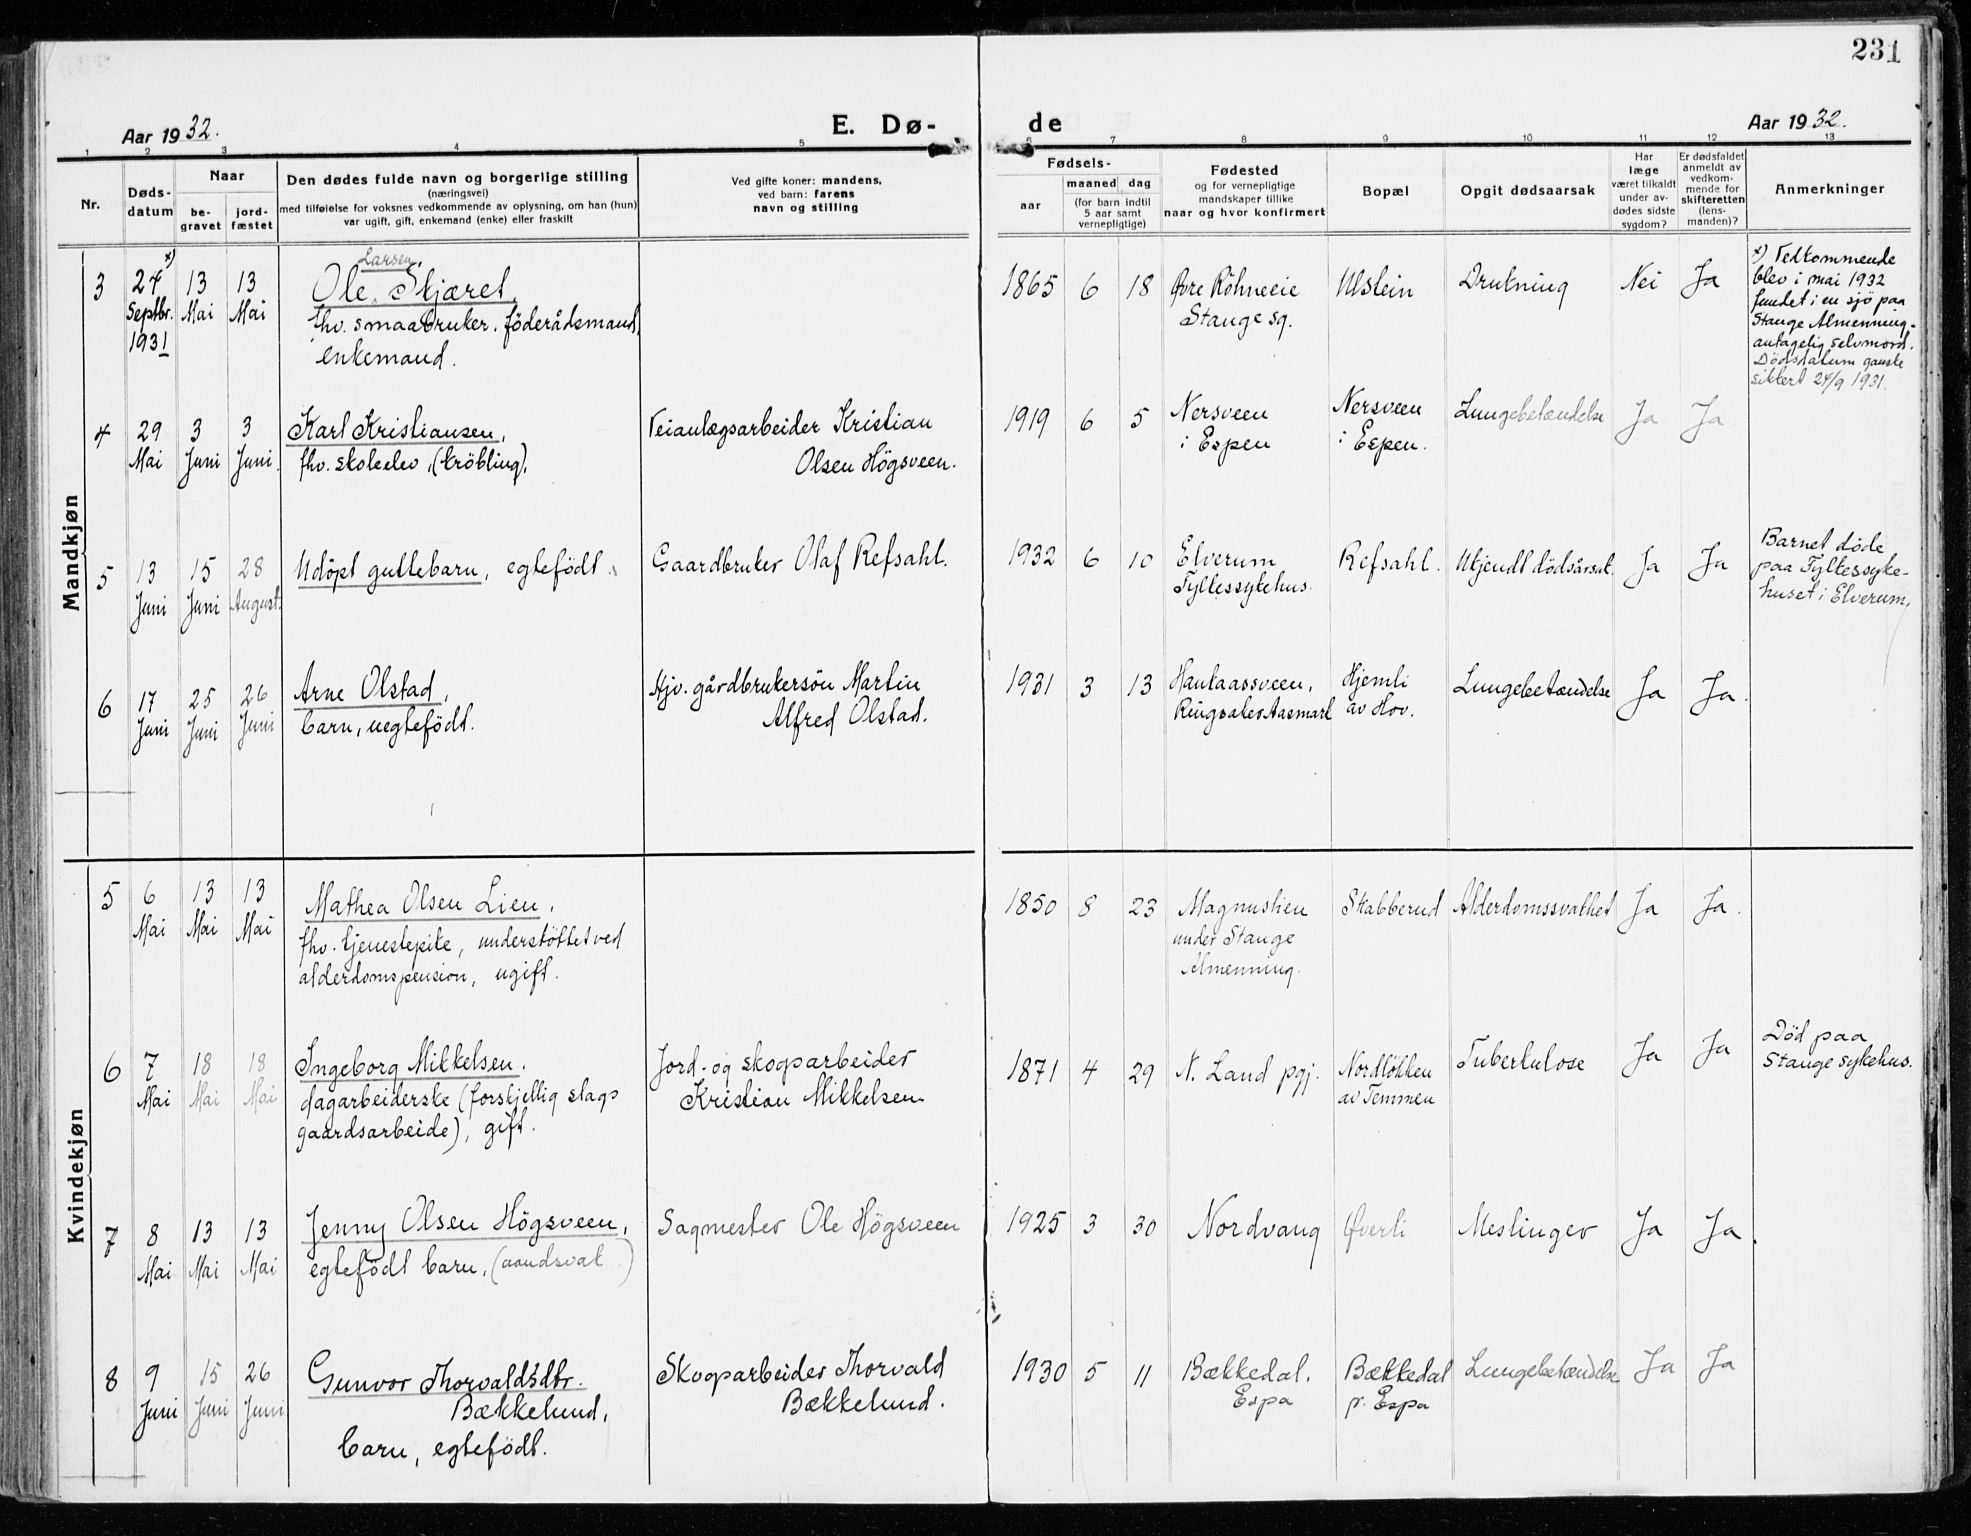 231
Aar 1932.
E. Dø-
de
Aar 1932.
1 2 3 4 5 6 7 8 9 10 11 12 13
Nr.
Døds-
datum
Naar
be-
gravet
jord-
fæstet
Den dødes fulde navn og borgerlige stilling
(næringsvei)
med tilføielse for voksnes vedkommende av oplysning, om han (hun)
var ugift, gift, enkemand (enke) eller fraskilt
Ved gifte koner: mandens,
ved barn: farens
navn og stilling
Fødsels-
aar
maaned dag
(for barn indtil
5 aar samt
vernepligtige)
Fødested
og for vernepligtige
mandskaper tillike
naar og hvor konfirmert
Bopæl
Opgit dødsaarsak
Har
læge
været tilkaldt
under av-
dødes sidste
sygdom?
Er dødsfaldet
anmeldt av
vedkom-
mende for
skifteretten
(lens-
manden)?
Anmerkninger
Mandkjøn
3
24 x)
Septbr.
1931
13
Mai
13
Mai
Larsen
Ole Skjæret,
fhv. smaabruker, föderådsmand,
enkemand.
1865 6 18
Øvre Röhneeie
Stange sg.
Ulstein
Drukning
Nei
Ja
x) Vedkommende
blev i mai 1932
fundet i en sjö paa
Stange Almenning-
antagelig selvmord.
Dödsdatum ganske
sikkert 24/9 1931.
4
29
Mai
3
Juni
3
Juni.
Karl Kristiansen,
fhv. skoleelev, (kröbling).
Veianlægsarbeider Kristian
Olsen Högsveen.
1919 6 5
Nersveen
i Espen
Nersveen
i Espen.
Lungebetændelse
Ja
Ja
5
13
Juni
15
Juni
28
August.
Udöpt guttebarn, egtefödt.
Gaardbruker Olaf Refsahl.
1932 6 10
Elverum
Fylkessykehus.
Refsahl.
Ukjendt dödsårsak.
Ja
Ja
Barnet døde
paa Fylkessyke-
huset i Elverum.
6
17
Juni
25
Juni
26
Juni
Arne Olstad,
barn, uegtefödt.
Hjv. gårdbrukersön Martin
Alfred Olstad.
1931 3 13
Hankaassveen,
Ringsaker Aasmark
Hjemli
av Hov.
Lungebetændelse
Ja
Ja.
Kvindekjøn
5
6
Mai
13
Mai
13
Mai
Mathea Olsen Lien,
fhv. tjenestepike, understöttet ved
alderdomspension, ugift.
1850 8 23
Magnuslien
under Stange
Almenning.
Skabberud
Alderdomssvakhet
Ja
Ja.
6
7
Mai
18
Mai
18
Mai
Ingeborg Mikkelsen.
dagarbeiderske (forskjellig slags
gaardsarbeide), gift.
Jord- og skogarbeider
Kristian Mikkelsen
1871 4 29
N. Land pgj.
Nordlökken
av Temmen
Tuberkulose
Ja
Ja
Död paa
Stange sykehus.
7
8
Mai
13
Mai
13
Mai
Jenny Olsen Högsveen,
egtefödt barn, (aandsvak)
Sagmester Ole Högsveen
1925 3 30
Nordvang
Øverli
Meslinger
Ja
Ja.
8
9
Juni
15
Juni
26
Juni
Gunvor Thorvaldsdtr.
Bækkelund,
barn, egtefödt.
Skogarbeider Thorvald
Bækkelund.
1930 5 11
Bækkedal.
Espa
Bækkedal
p. Espa
Lungebetændelse
Ja
Ja